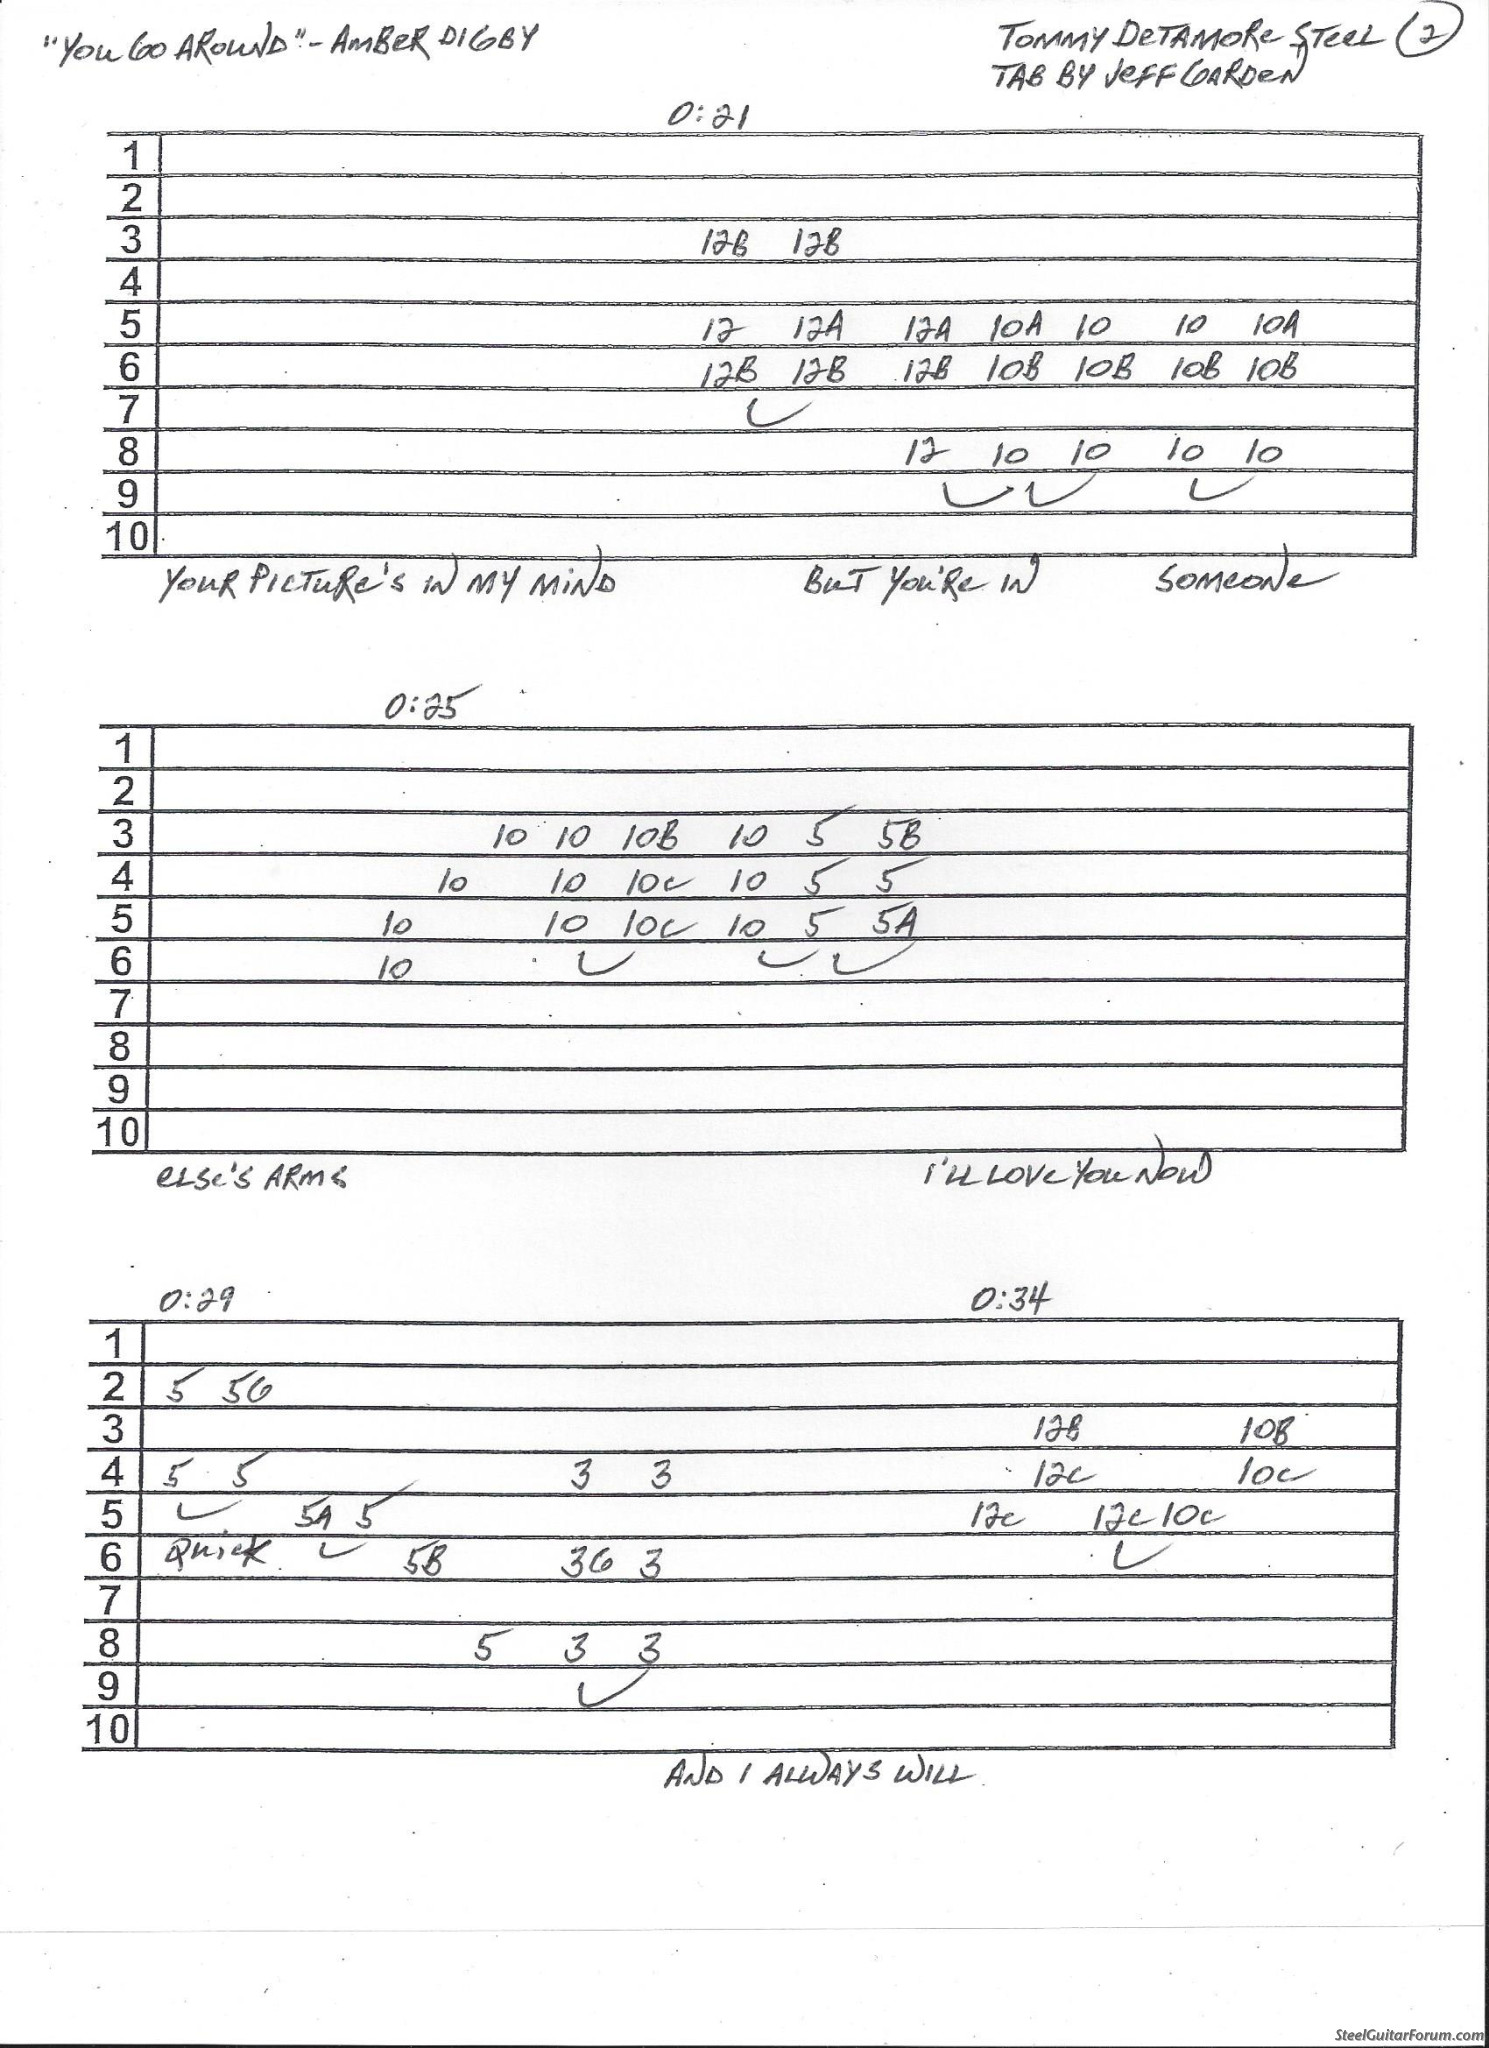 "YOU GO AROUND" - AMBER DIGBY
TOMMY DETAMORE STEEL 2
TAB BY JEFF GARDEN
0:21
1
2
3 12B 12B
4
5 12 12A 12A 10A 10 10 10A
6 12B 12B 12B 10B 10B 10B 10B
7
8 12 10 10 10 10
9
10
YOUR PICTURE'S IN MY MIND BUT YOU'RE IN SOMEONE
0:25
1
2
3 10 10 10B 10 5 5B
4 10 10 10C 10 5 5
5 10 10 10C 10 5 5A
6 10
7
8
9
10
ELSE'S ARMS I'LL LOVE YOU NOW
0:29 0:34
1
2 5 5G
3 12B 10B
4 5 5 3 3 12C 10C
5 5A 5 12C 12C 10C
6 QUICK 5B 3G 3
7
8 5 3 3
9
10
AND I ALWAYS WILL
SteelGuitarForum.com